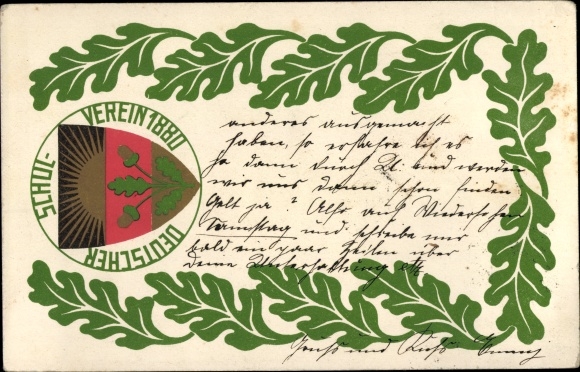 DEUTSCHER SCHUL-VEREIN 1880
anderes ausgemacht
haben, so erfahre ich es
ja dann durch und werden
wir uns dann schon finden
Gelt ja? Also auf Wiedersehen
Samstag und schreibe mir
bald ein paar Zeilen über
deine Unterhaltung etz
Gruß und Kuß